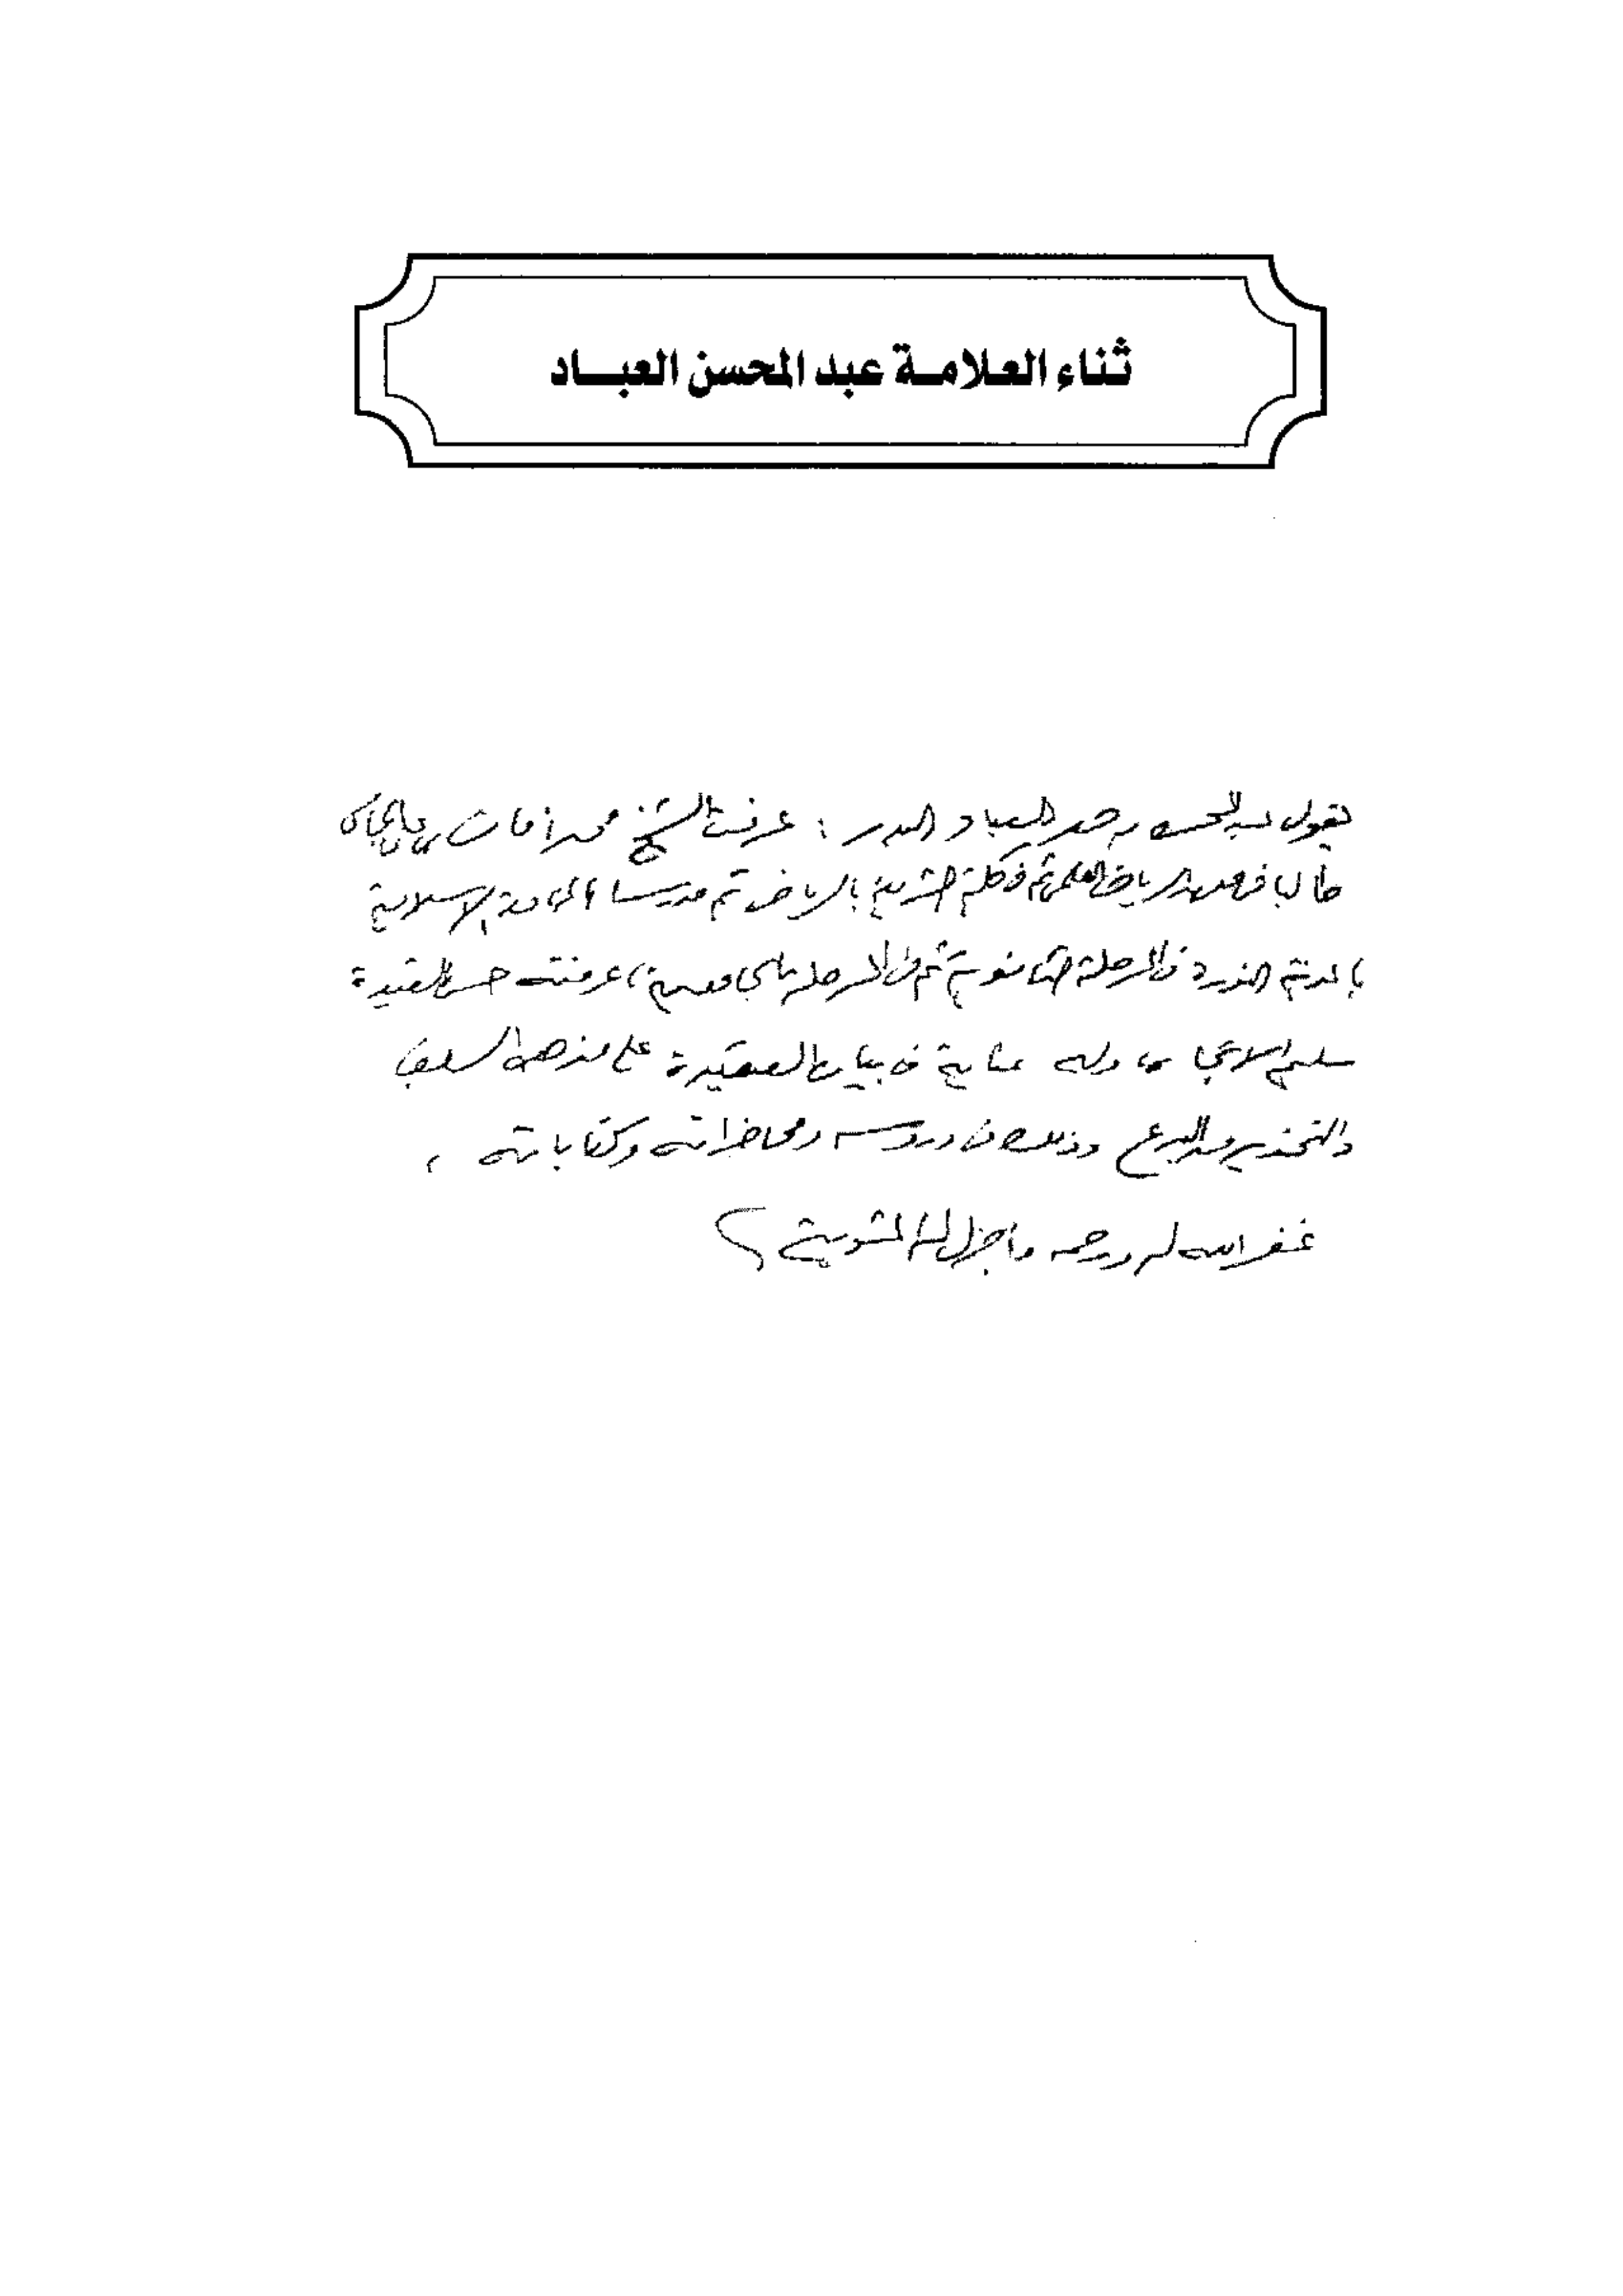 ثناء العلامة عبد المحسن العباد
يقول عبد المحسن بن حمد العباد البدر : عرفت الشيخ محمد أمان بن علي الجامي
طالبا في معهد الرياض العلمي ثم في كلية الشريعة بالرياض ثم مدرسا بالجامعة الإسلامية
بالمدينة المنورة في المرحلة الثانوية ثم في المرحلة الجامعية، عرفته حسن العقيدة
سليم الاتجاه، وله عناية في بيان العقيدة على مذهب السلف
والتحذير من البدع وذلك في دروسه ومحاضراته وكتاباته ،
غفر الله له ورحمه وأجزل له المثوبة